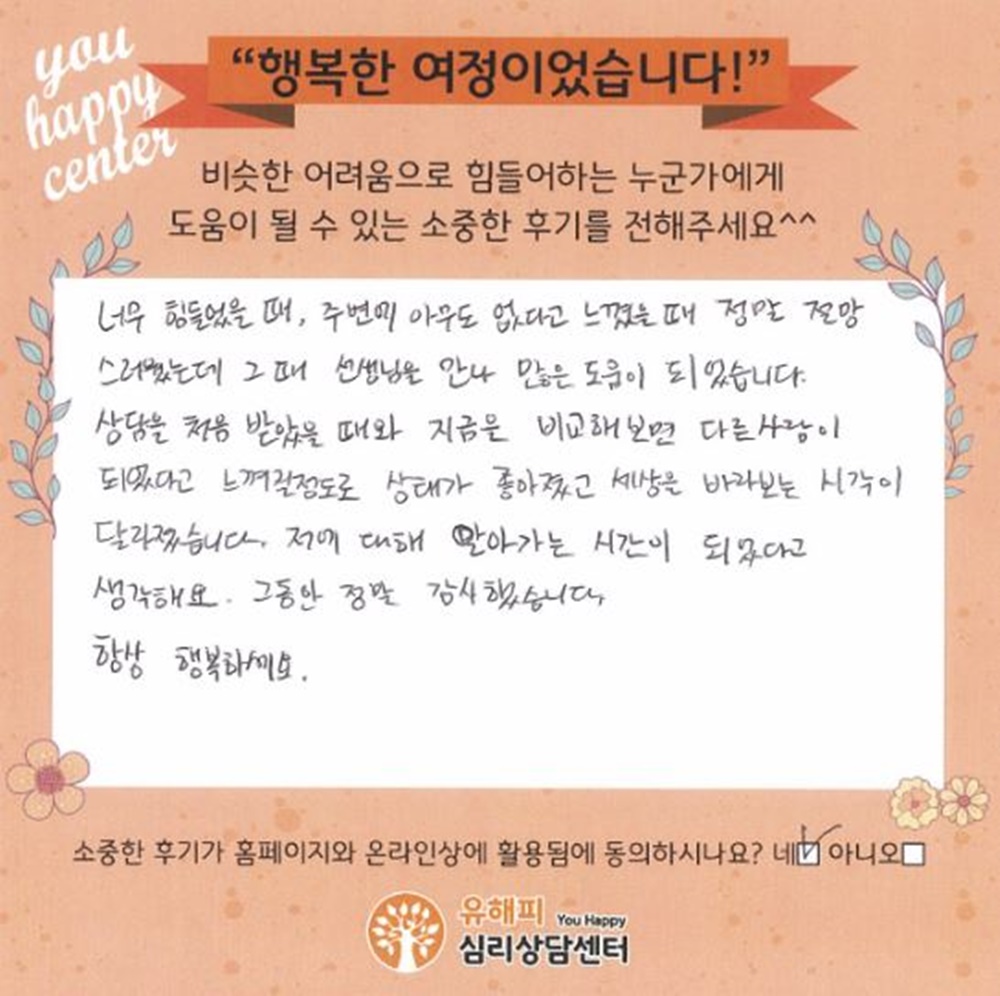 you
happy
center
“행복한 여정이었습니다!”
비슷한 어려움으로 힘들어하는 누군가에게
도움이 될 수 있는 소중한 후기를 전해주세요^^
너무 힘들었을 때, 주변에 아무도 없다고 느꼈을 때 정말 절망
스러웠는데 그 때 선생님을 만나 많은 도움이 되었습니다.
상담을 처음 받았을 때와 지금을 비교해보면 다른사람이
되었다고 느껴질정도로 상태가 좋아졌고 세상을 바라보는 시각이
달라졌습니다. 저에 대해 알아가는 시간이 되었다고
생각해요. 그동안 정말 감사했습니다.
항상 행복하세요.
소중한 후기가 홈페이지와 온라인상에 활용됨에 동의하시나요? 네☑ 아니오☐
유해피 You Happy
심리상담센터